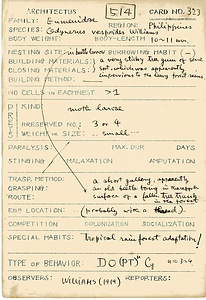 ARCHITECTUS 5/4 CARD NO. 323
FAMILY: Eumenidae REGION: Philippines
SPECIES: Odynerus vespoides Williams
BODY WEIGHT: BODY-LENGTH 10-11 mm.
NESTING SITE: in bettle bower BURROWING HABIT (-)
BUILDING MATERIALS: a very sticky tree gum or some
CLOSING MATERIALS: sort, which was apparently
BUILDING METHOD: impervious to the heavy forest rains
NO CELLS IN EACH NEST >1
KIND: moth larvae
PRESERVED NO.: 3 or 4
WEIGHT OR SIZE: .. small ..
PARALYSIS: MAX. DUR DAYS
STINGING MALAXATION AMPUTATION
TRANSP. METHOD: a short gallery, apparently
GRASPING: an old bettle boring in
ROUTE: surface of a fallen tree trunk
in the forest
EGG LOCATION: (probably with a thread).
COMPETITION COLONIZATION SOCIALIZATION
SPECIAL HABITS: tropical rain forest adaptation!
TYPE OF BEHAVIOR: DO(PT)
OBSERVERS: Williams (1919) REPORTERS: